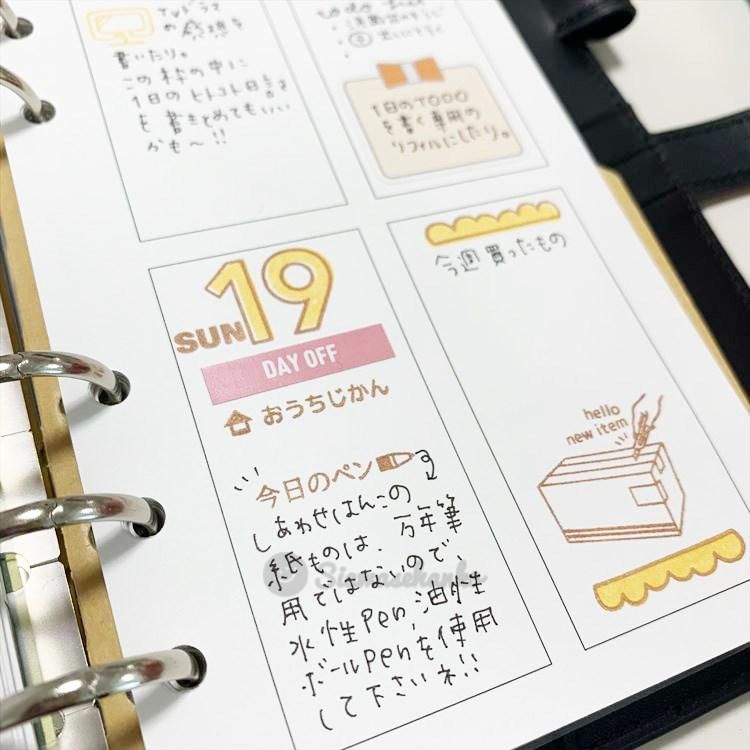 TVドラマ
の感想を
書いたり。
この枠の中に
1日のヒトコト日記
を書きとめてもいい
かも〜!!
to do free
1日のTODO
を書く専用の
リフィルにしたり。
SUN 19
DAY OFF
おうちじかん
今日のペン
しあわせはんこの
紙ものは、万年筆
用ではないので、
水性pen,油性
ボールpenを使用
して下さいネ!!
今週買ったもの
hello
new item
Siawasehanko